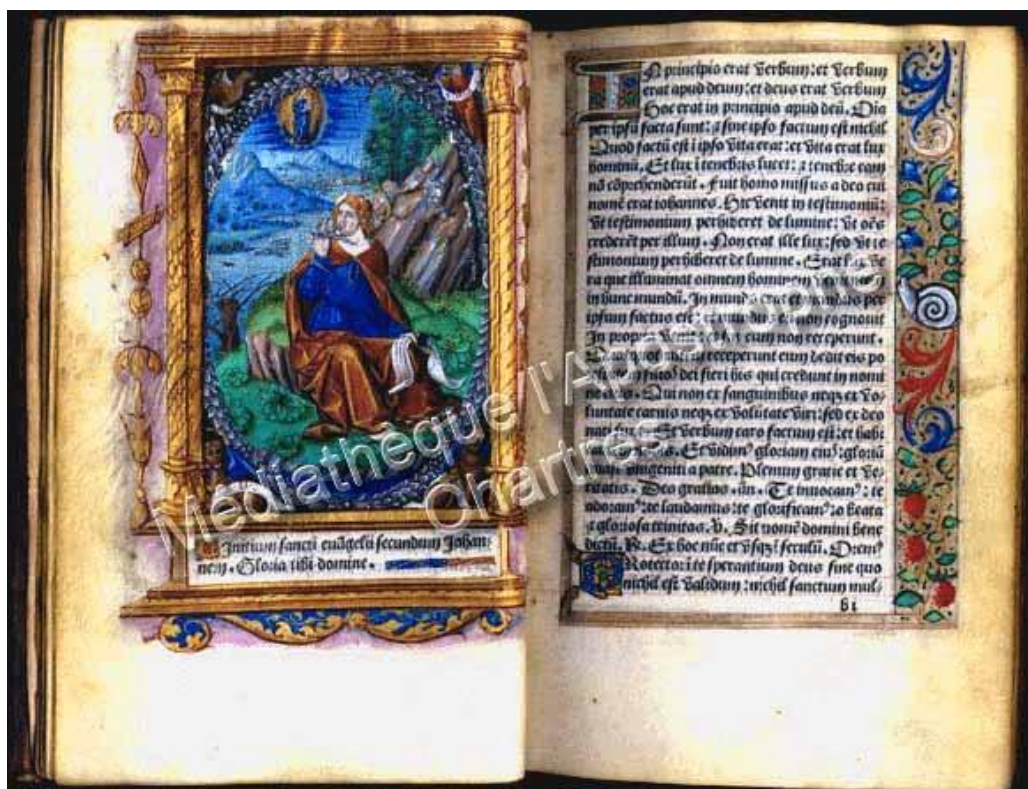 Initium sancti euāgelii secundum Johan-
nem. Gloria tibi domine.
IN principio erat Verbum: et Verbum
erat apud deum: et deus erat Verbum
Hoc erat in principio apud deū. Oīa
per ipsū facta sunt: ⁊ sine ipso factum est nichil
Quod factū est ī ipso Vita erat: et Vita erat lux
hominū. Et lux ī tenebris lucet: ⁊ tenebre eam
nō cōprehenderūt. Fuit homo missus a deo cui
nomē erat iohannes. Hic venit in testimoniū:
Vt testimonium perhiberet de lumine: Vt oēs
crederēt per illum. Non erat ille lux: sed Vt te-
stimonium perhiberet de lumine. Erat lux Ve
ra que illuminat omnem hominem
in hunc mundū. In mundo erat et mundus per
ipsum factus est: et mundus eū non cognouit
In propria Venit: et sui eum non receperunt.
receperunt eum dedit eis po
dei fieri his qui credunt in nomi
ne eius. Qui non ex sanguinibus neqꝫ ex Vo-
luntate carnis neqꝫ ex Volūtate Viri: sed ex deo
nati sunt. Et Verbum caro factum est: et habi
Et Vidimꝰ gloriam eiꝰ: gloriā
Vnigeniti a patre. Plenum gratie et Ve-
ritatis. Deo gratias. añ. Te inuocamꝰ: te
adoramꝰ: te laudamus: te glorificamꝰ: o beata
⁊ gloriosa trinitas. V. Sit nomē domini bene
dictū. R. Ex hoc nūc et Vsqꝫ ī seculū. Oremꝰ
PRotector ī te sperantium deus sine quo
nichil est Validum: nichil sanctum mul-
b i
Médiathèque l'Apostrophe
Chartres